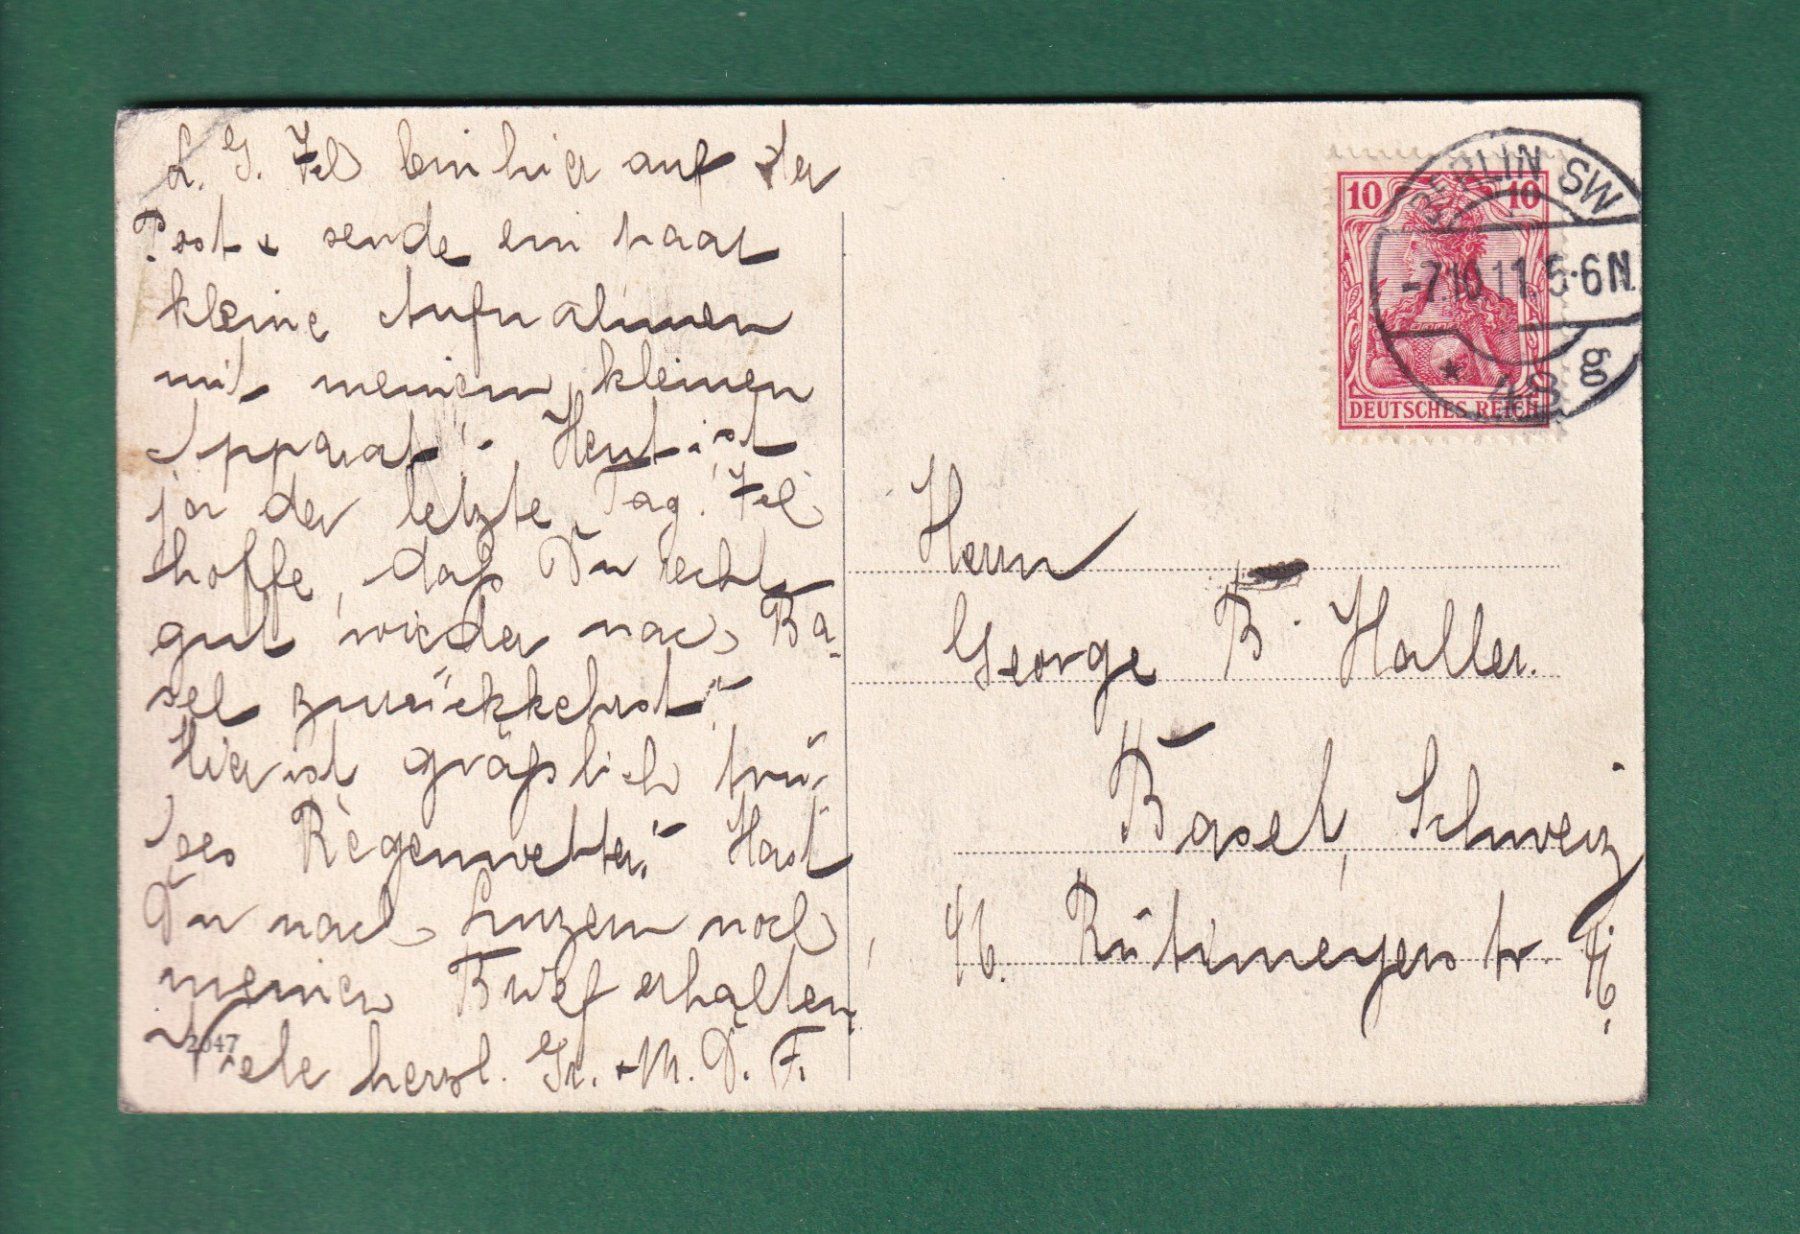 L. G. Ich bin hier auf der
Post & sende ein paar
kleine Aufnahmen
mit meinem kleinen
Apparat. Heut ist
ja der letzte Tag. Ich
hoffe, daß Du recht
gut wieder nach Ba-
sel zurückkehrst.
Hier ist gräßlich trü-
bes Regenwetter. Hast
Du nach Luzern noch
meinen Brief erhalten
Viele herzl. Gr. M. D. F.
2047
10 10
DEUTSCHES REICH
BERLIN SW
-7.10.11. 5-6N.
* 48 g
Herrn
George B. Haller.
Basel, Schweiz
46. Rütimeyerstr. 46.